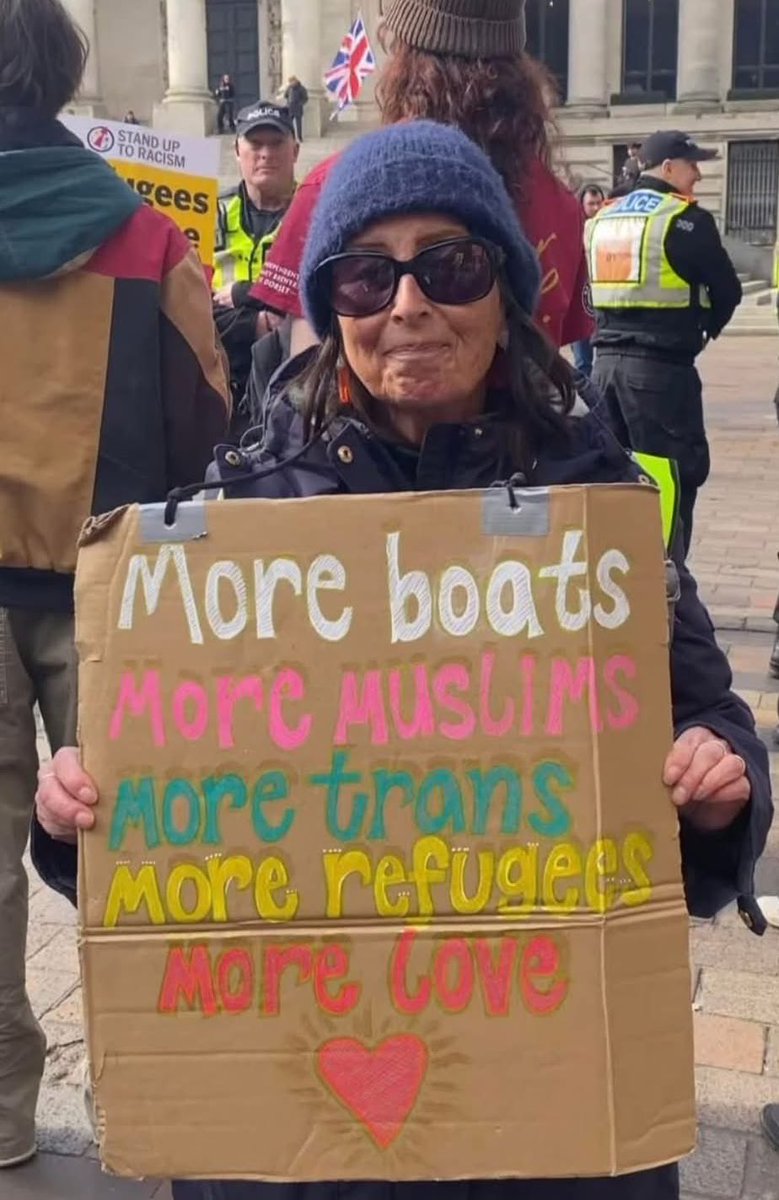 STAND UP
TO RACISM
POLICE
POLICE
More boats
More Muslims
More trans
More refugees
More love